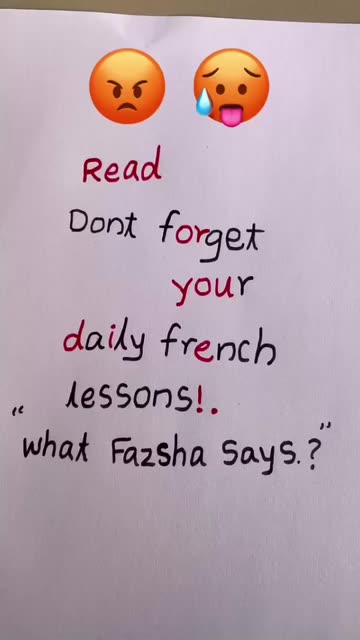 Read
Dont forget
your
daily french
lessons!.
"what Fazsha says.?"